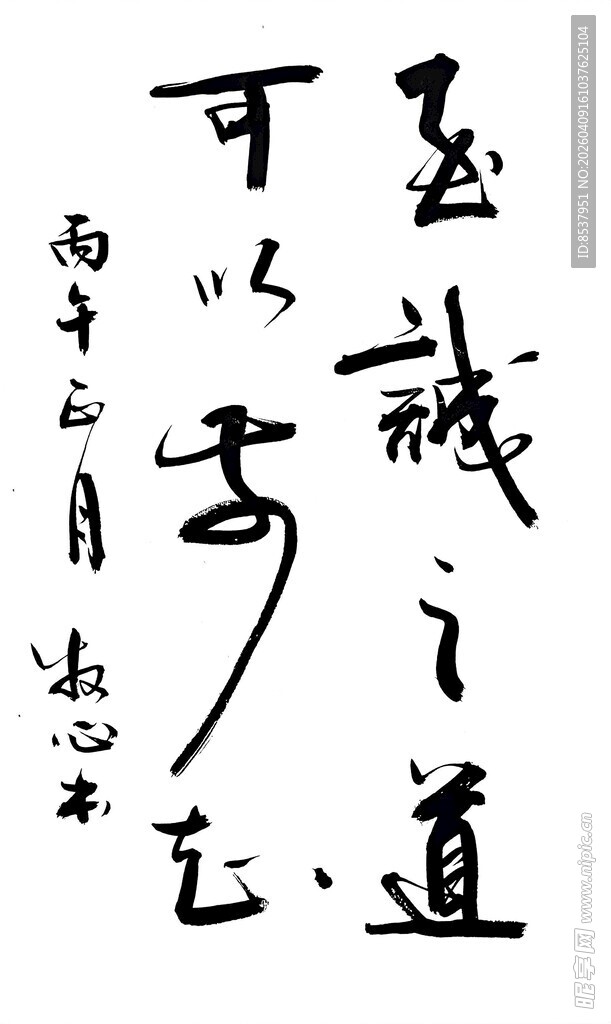 至誠之道
可以前知
丙午正月 牧心书
ID:8537951 NO:20260409161037625104
昵享网 www.nipic.cn